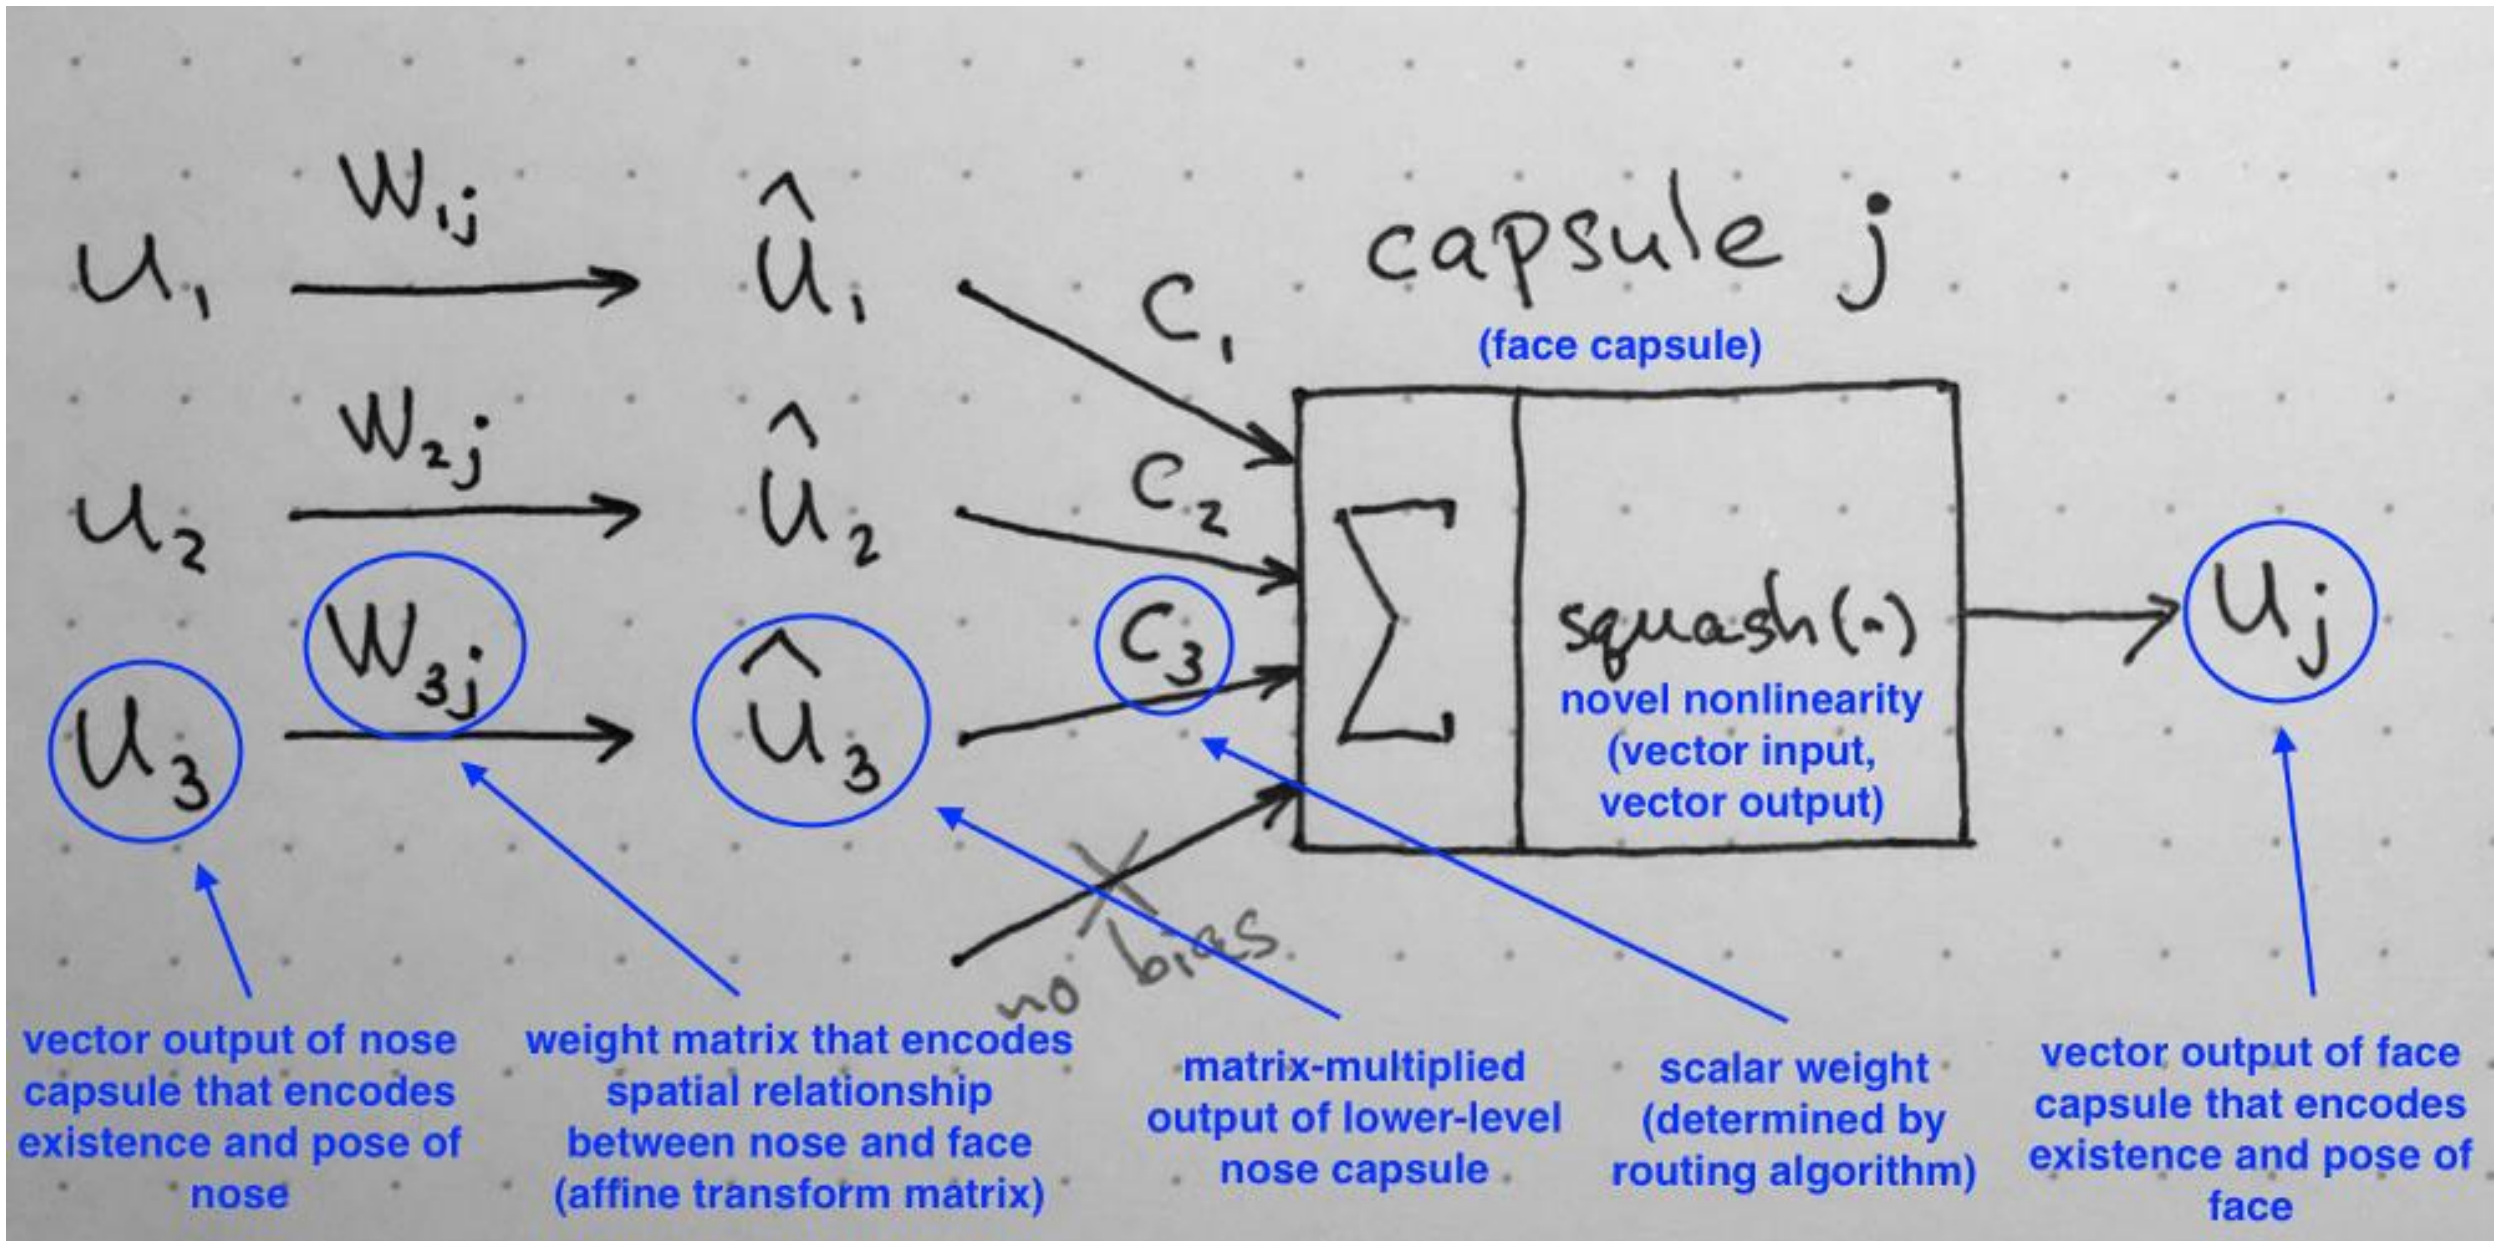 W₁ⱼ
u₁
û₁
C₁
capsule j
(face capsule)
W₂ⱼ
u₂
û₂
C₂
W₃ⱼ
u₃
û₃
C₃
Σ
squash(·)
novel nonlinearity
(vector input,
vector output)
uⱼ
no bias
vector output of nose
capsule that encodes
existence and pose of
nose
weight matrix that encodes
spatial relationship
between nose and face
(affine transform matrix)
matrix-multiplied
output of lower-level
nose capsule
scalar weight
(determined by
routing algorithm)
vector output of face
capsule that encodes
existence and pose of
face